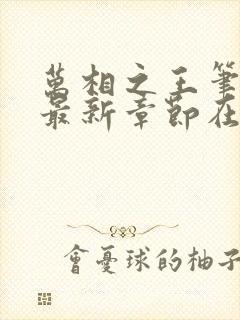 萬相之王筆
最新章節在
會憂球的柚子